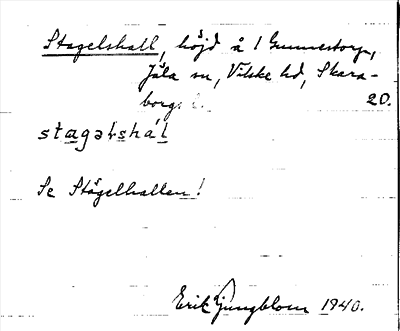 Stagelshall, höjd å 1 Gunnestorp,
Jäla sn, Vilske hd, Skara-
borgs l. 20.
stagəlshál
Se Stågelhallen!
Erik Ljungblom 1940.